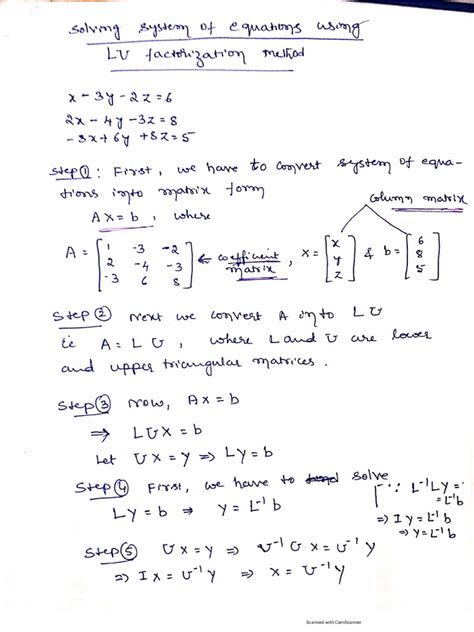 Solving System of equations using
LU factorization method
x - 3y - 2z = 6
2x - 4y - 3z = 8
-3x + 6y + 8z = 5
Step ① : First, we have to convert system of equa-
tions into matrix form
Ax = b , where
column matrix
A = [1 -3 -2
2 -4 -3
-3 6 8] ← coefficient matrix , x = [x
y
z] & b = [6
8
5]
Step ② Next we convert A into LU
ie A = LU , where L and U are lower
and upper triangular matrices .
Step ③ Now, Ax = b
⇒ LUx = b
Let Ux = y ⇒ Ly = b
Step ④ First, we have to solve
Ly = b ⇒ y = L⁻¹ b
[∵ L⁻¹Ly =
= L⁻¹b
⇒ Iy = L⁻¹b
⇒ y = L⁻¹b
Step ⑤ Ux = y ⇒ U⁻¹Ux = U⁻¹y
⇒ Ix = U⁻¹y ⇒ x = U⁻¹y
Scanned with CamScanner